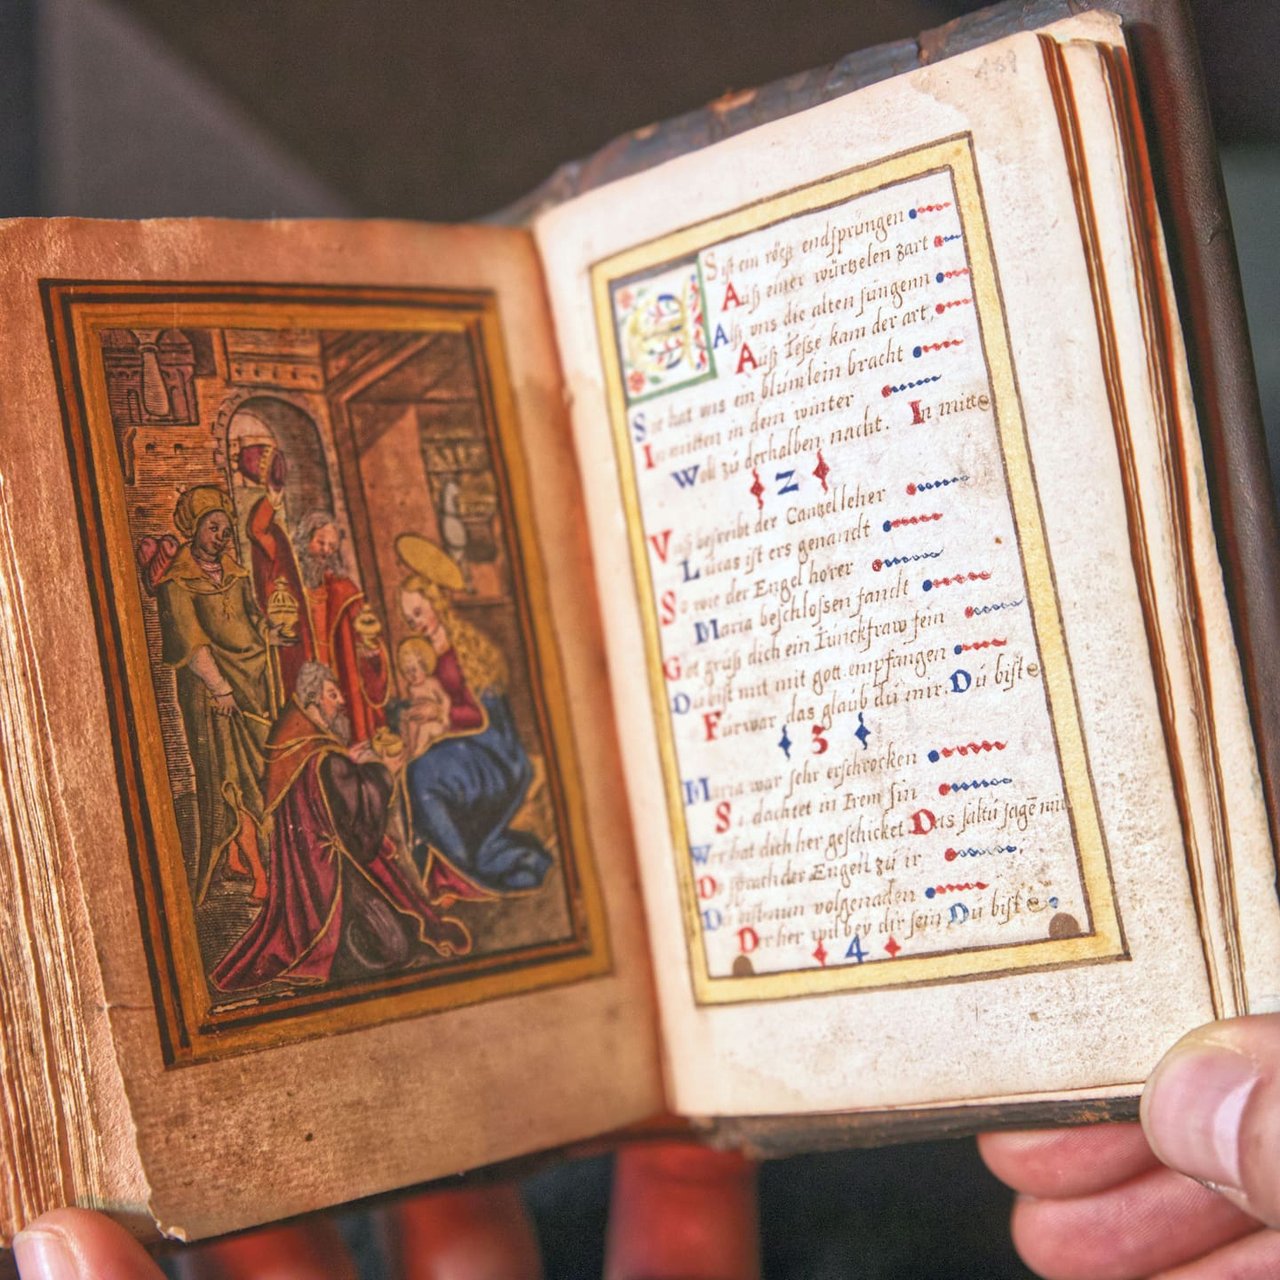 189
ES ist ein röeß endsprüngen
Auß einer würtzelen zart
Alß vns die alten süngenn
Auß Iesse kam der art,
Sie hat vns ein blümlein bracht
In mitten in dem winter
Woll zü der halben nacht. In mitte
2
Vnß beschreibt der Cantzelleher
Lucas ist ers genandt
So wie der Engel horer
Maria beschlossen fandt
Got grüß dich ein Iunckfraw fein
Du bist mit mit gott empfangen
Fürwar das glaub dü mir. Dü biste
3
Maria war sehr erschrocken
Si dachtet in Irem sin
Wer hat dich her geschicket Das saltü sagē mir
De sprach der Engell zü ir
Der her wil bey dir sein Dü biste
4